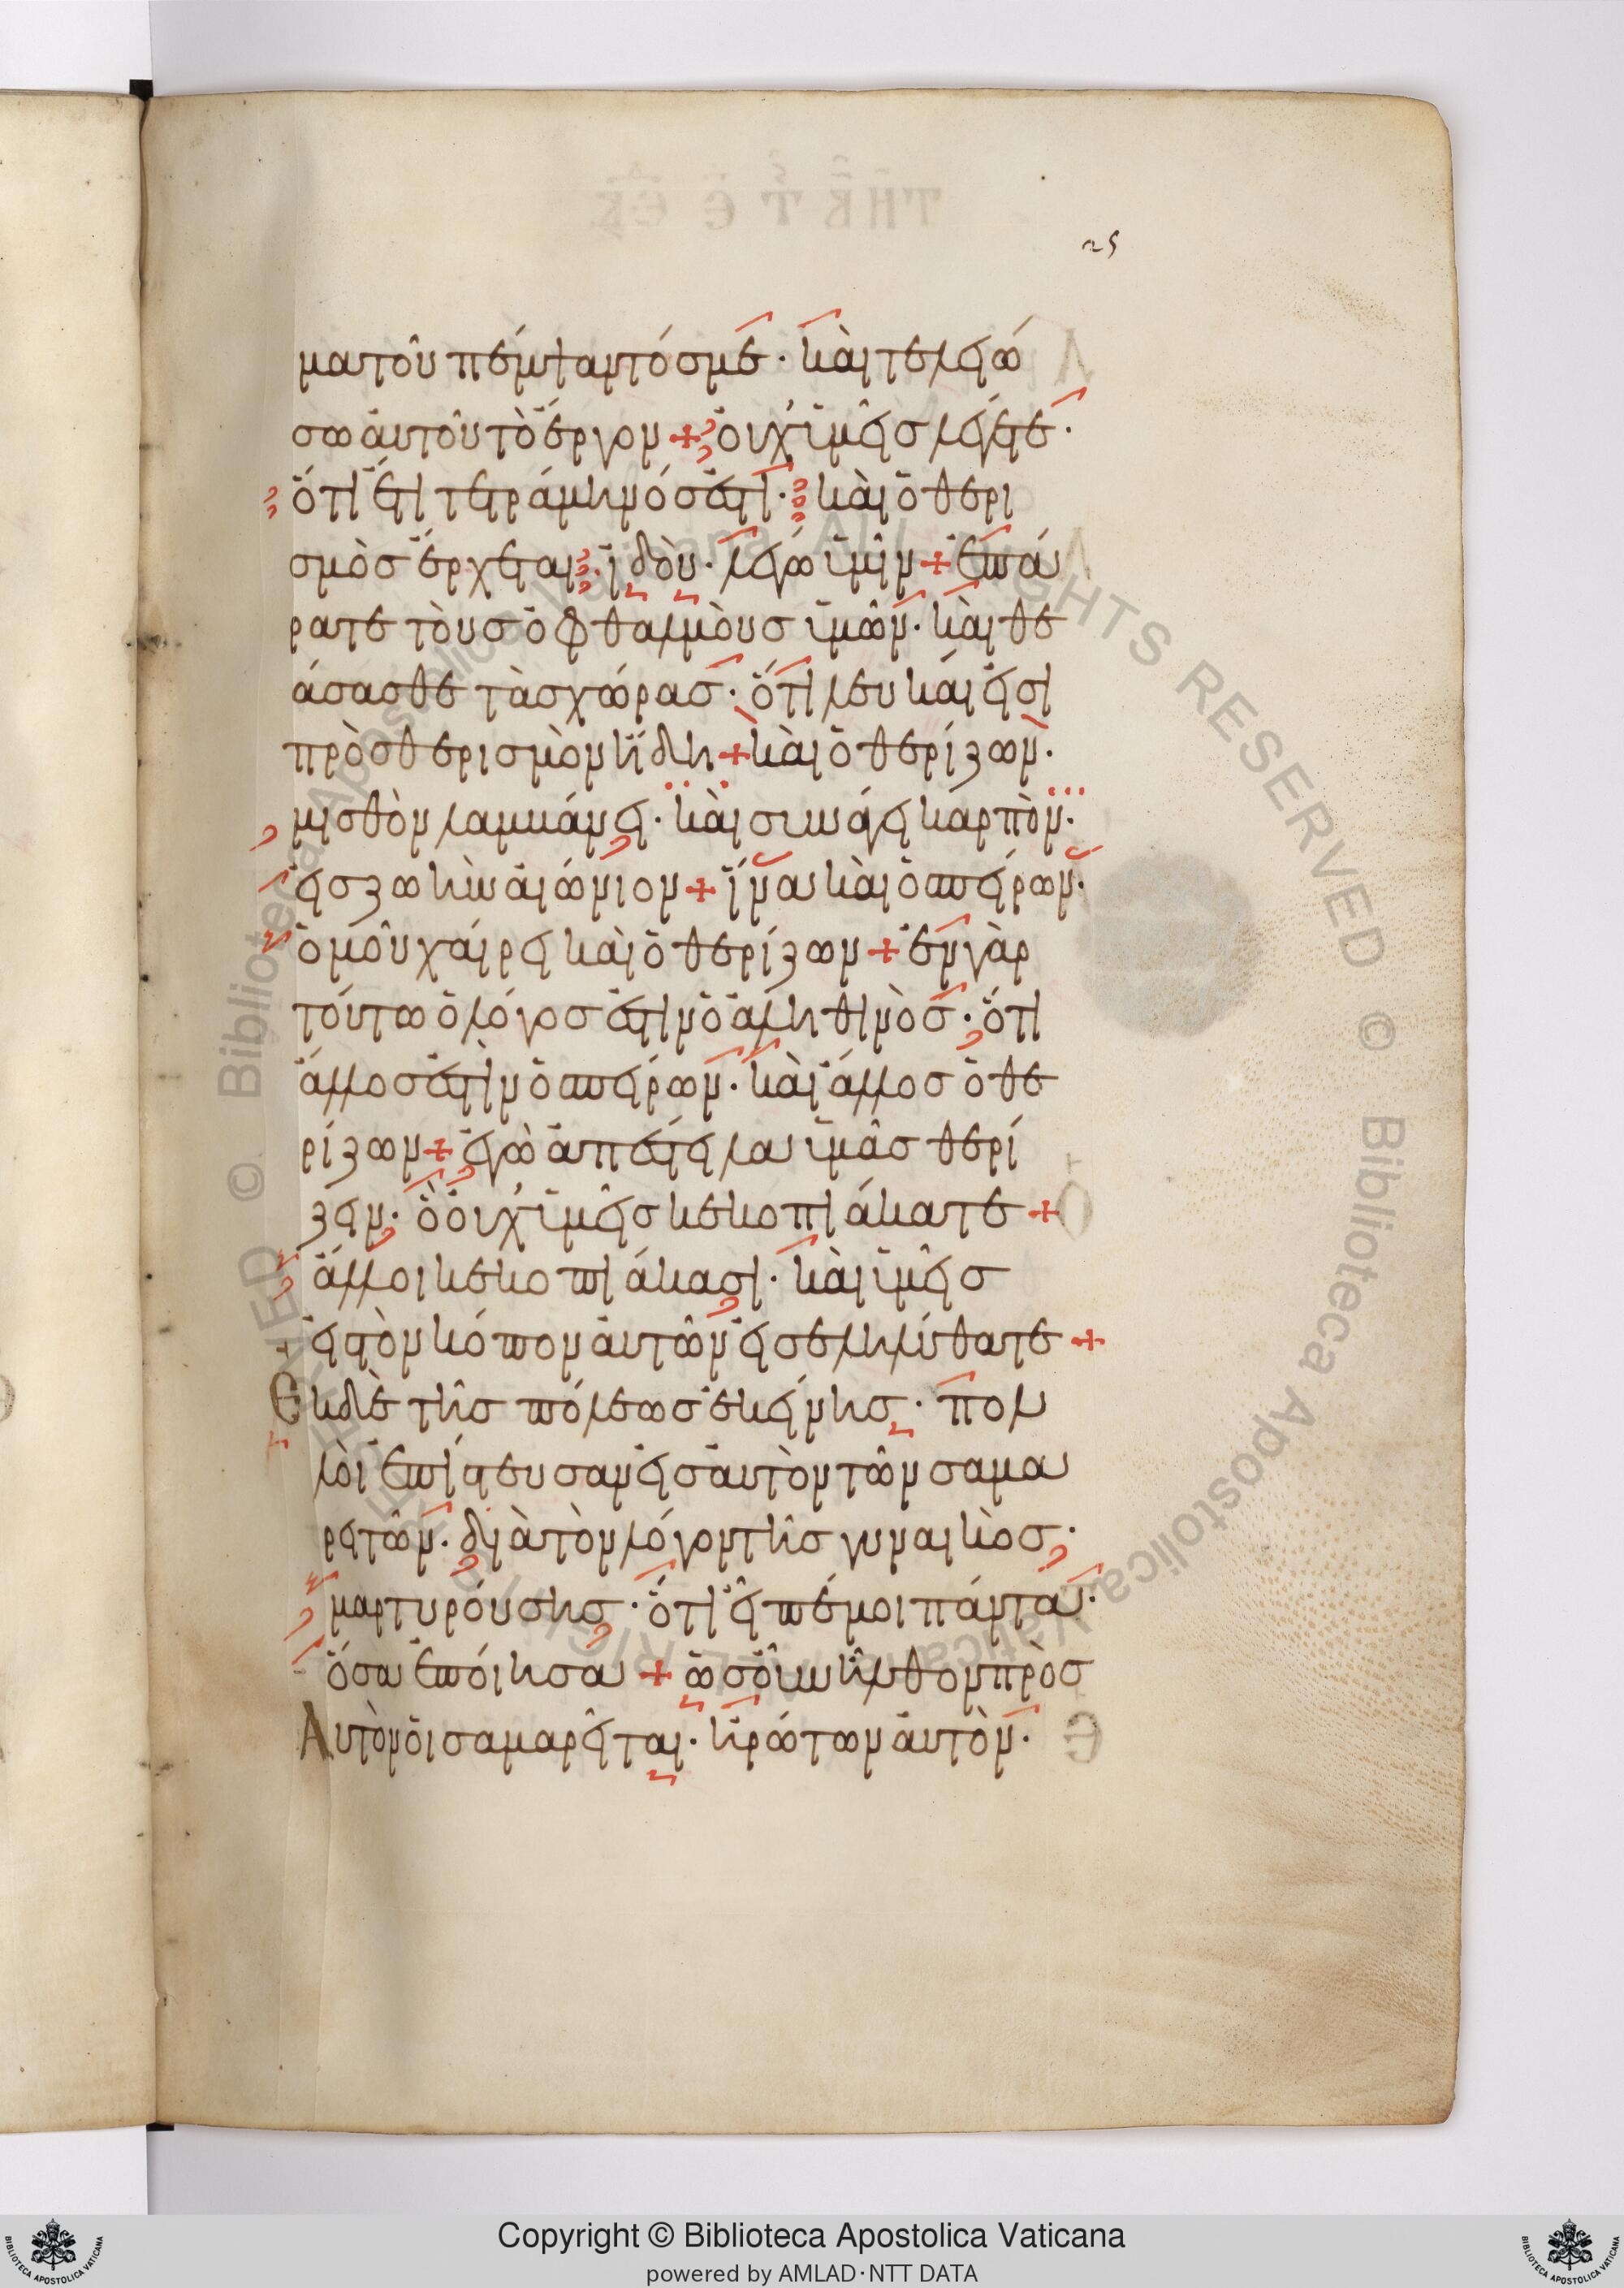 25
ματοῦ πέμψαντός με· καὶ τελειώ
σω αὐτοῦ τὸ ἔργον + οὐχ ὑμεῖς λέγετε·
ὅτι ἔτι τετράμηνός ἐστι· καὶ ὁ θερι
σμὸς ἔρχεται· ἰδοὺ· λέγω ὑμῖν + ἐπά
ρατε τοὺς ὀφθαλμοὺς ὑμῶν· καὶ θε
άσασθε τὰς χώρας· ὅτι λευκάι εἰσι
πρὸς θερισμὸν ἤδη + καὶ ὁ θερίζων·
μισθὸν λαμβάνει· καὶ συνάγει καρπὸν·
εἰς ζωὴν αἰώνιον + ἵνα καὶ ὁ σπείρων·
ὁμοῦ χαίρει καὶ ὁ θερίζων + ἐν γὰρ
τούτω ὁ λόγος ἐστὶν ὁ ἀληθινὸς· ὅτι
ἄλλος ἐστὶν ὁ σπείρων· καὶ ἄλλος ὁ θε
ρίζων + ἐγὼ ἀπέστειλα ὑμᾶς θερί
ζειν· ὃ οὐχ ὑμεῖς κεκοπιάκατε +
ἄλλοι κεκοπιάκασι· καὶ ὑμεῖς
εἰς τὸν κόπον αὐτῶν εἰσεληλύθατε +
Ἐκ δὲ τῆς πόλεως ἐκείνης· πολ
λοὶ ἐπίστευσαν εἰς αὐτὸν τῶν σαμα
ρειτῶν· διὰ τὸν λόγον τῆς γυναικὸς·
μαρτυρούσης· ὅτι εἶπέ μοι πάντα·
ὅσα ἐποίησα + ὡς οὖν ἦλθον πρὸς
Αὐτὸν οἱ σαμαρεῖται· ἠρώτων αὐτὸν·
© Biblioteca Apostolica Vaticana ALL RIGHTS RESERVED © Biblioteca Apostolica Vaticana ALL RIGHTS RESERVED
Copyright © Biblioteca Apostolica Vaticana
powered by AMLAD·NTT DATA